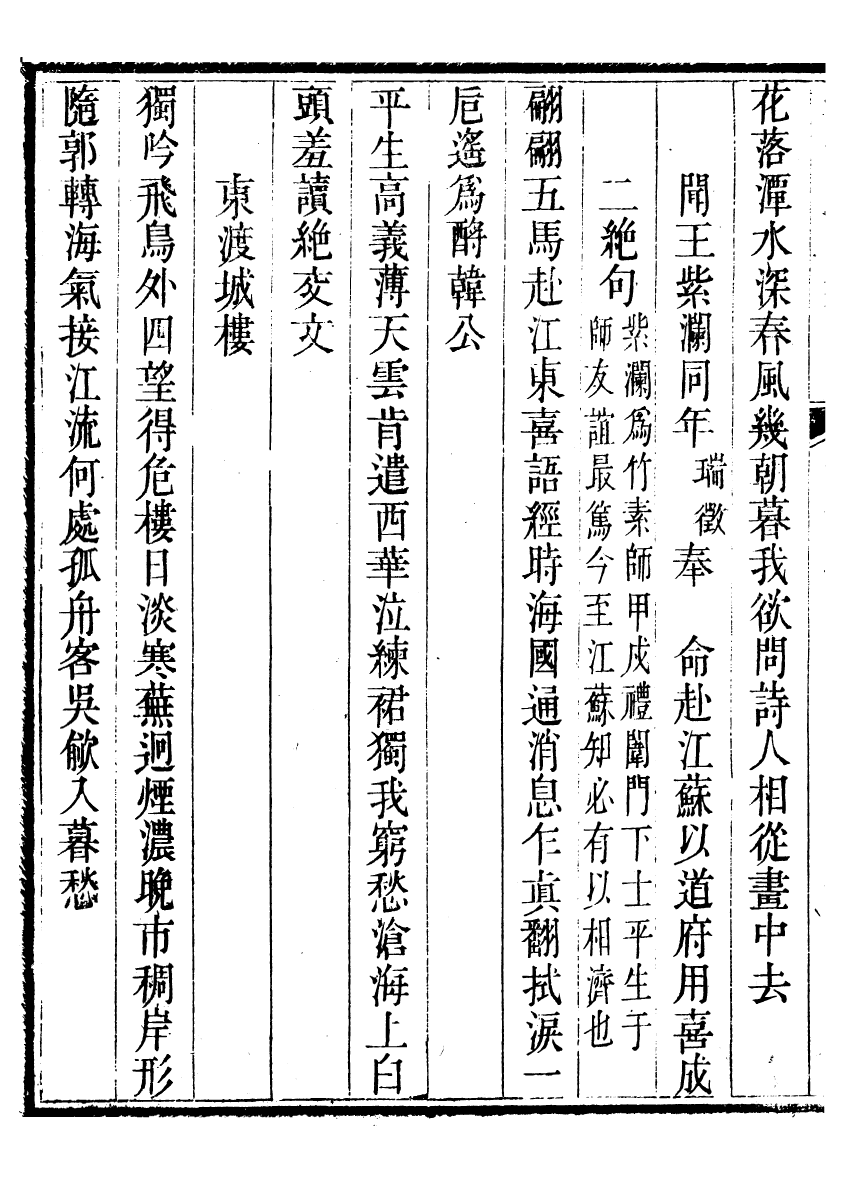 花落潭水深春風幾朝暮我欲問詩人相從畫中去
聞王紫瀾同年瑞徵奉　命赴江蘇以道府用喜成
二絶句紫瀾爲竹素師甲戍禮闈門下士平生于
師友誼最篤今至江蘇知必有以相濟也
翩翩五馬赴江東喜語經時海國通消息乍眞翻拭淚一
卮遙爲酹韓公
平生高義薄天雲肯遣西華泣練裙獨我窮愁滄海上白
頭羞讀絶交文
東渡城樓
獨吟飛鳥外四望得危樓日淡寒蕪迥煙濃晚市稠岸形
隨郭轉海氣接江流何處孤舟客吳歈入暮愁